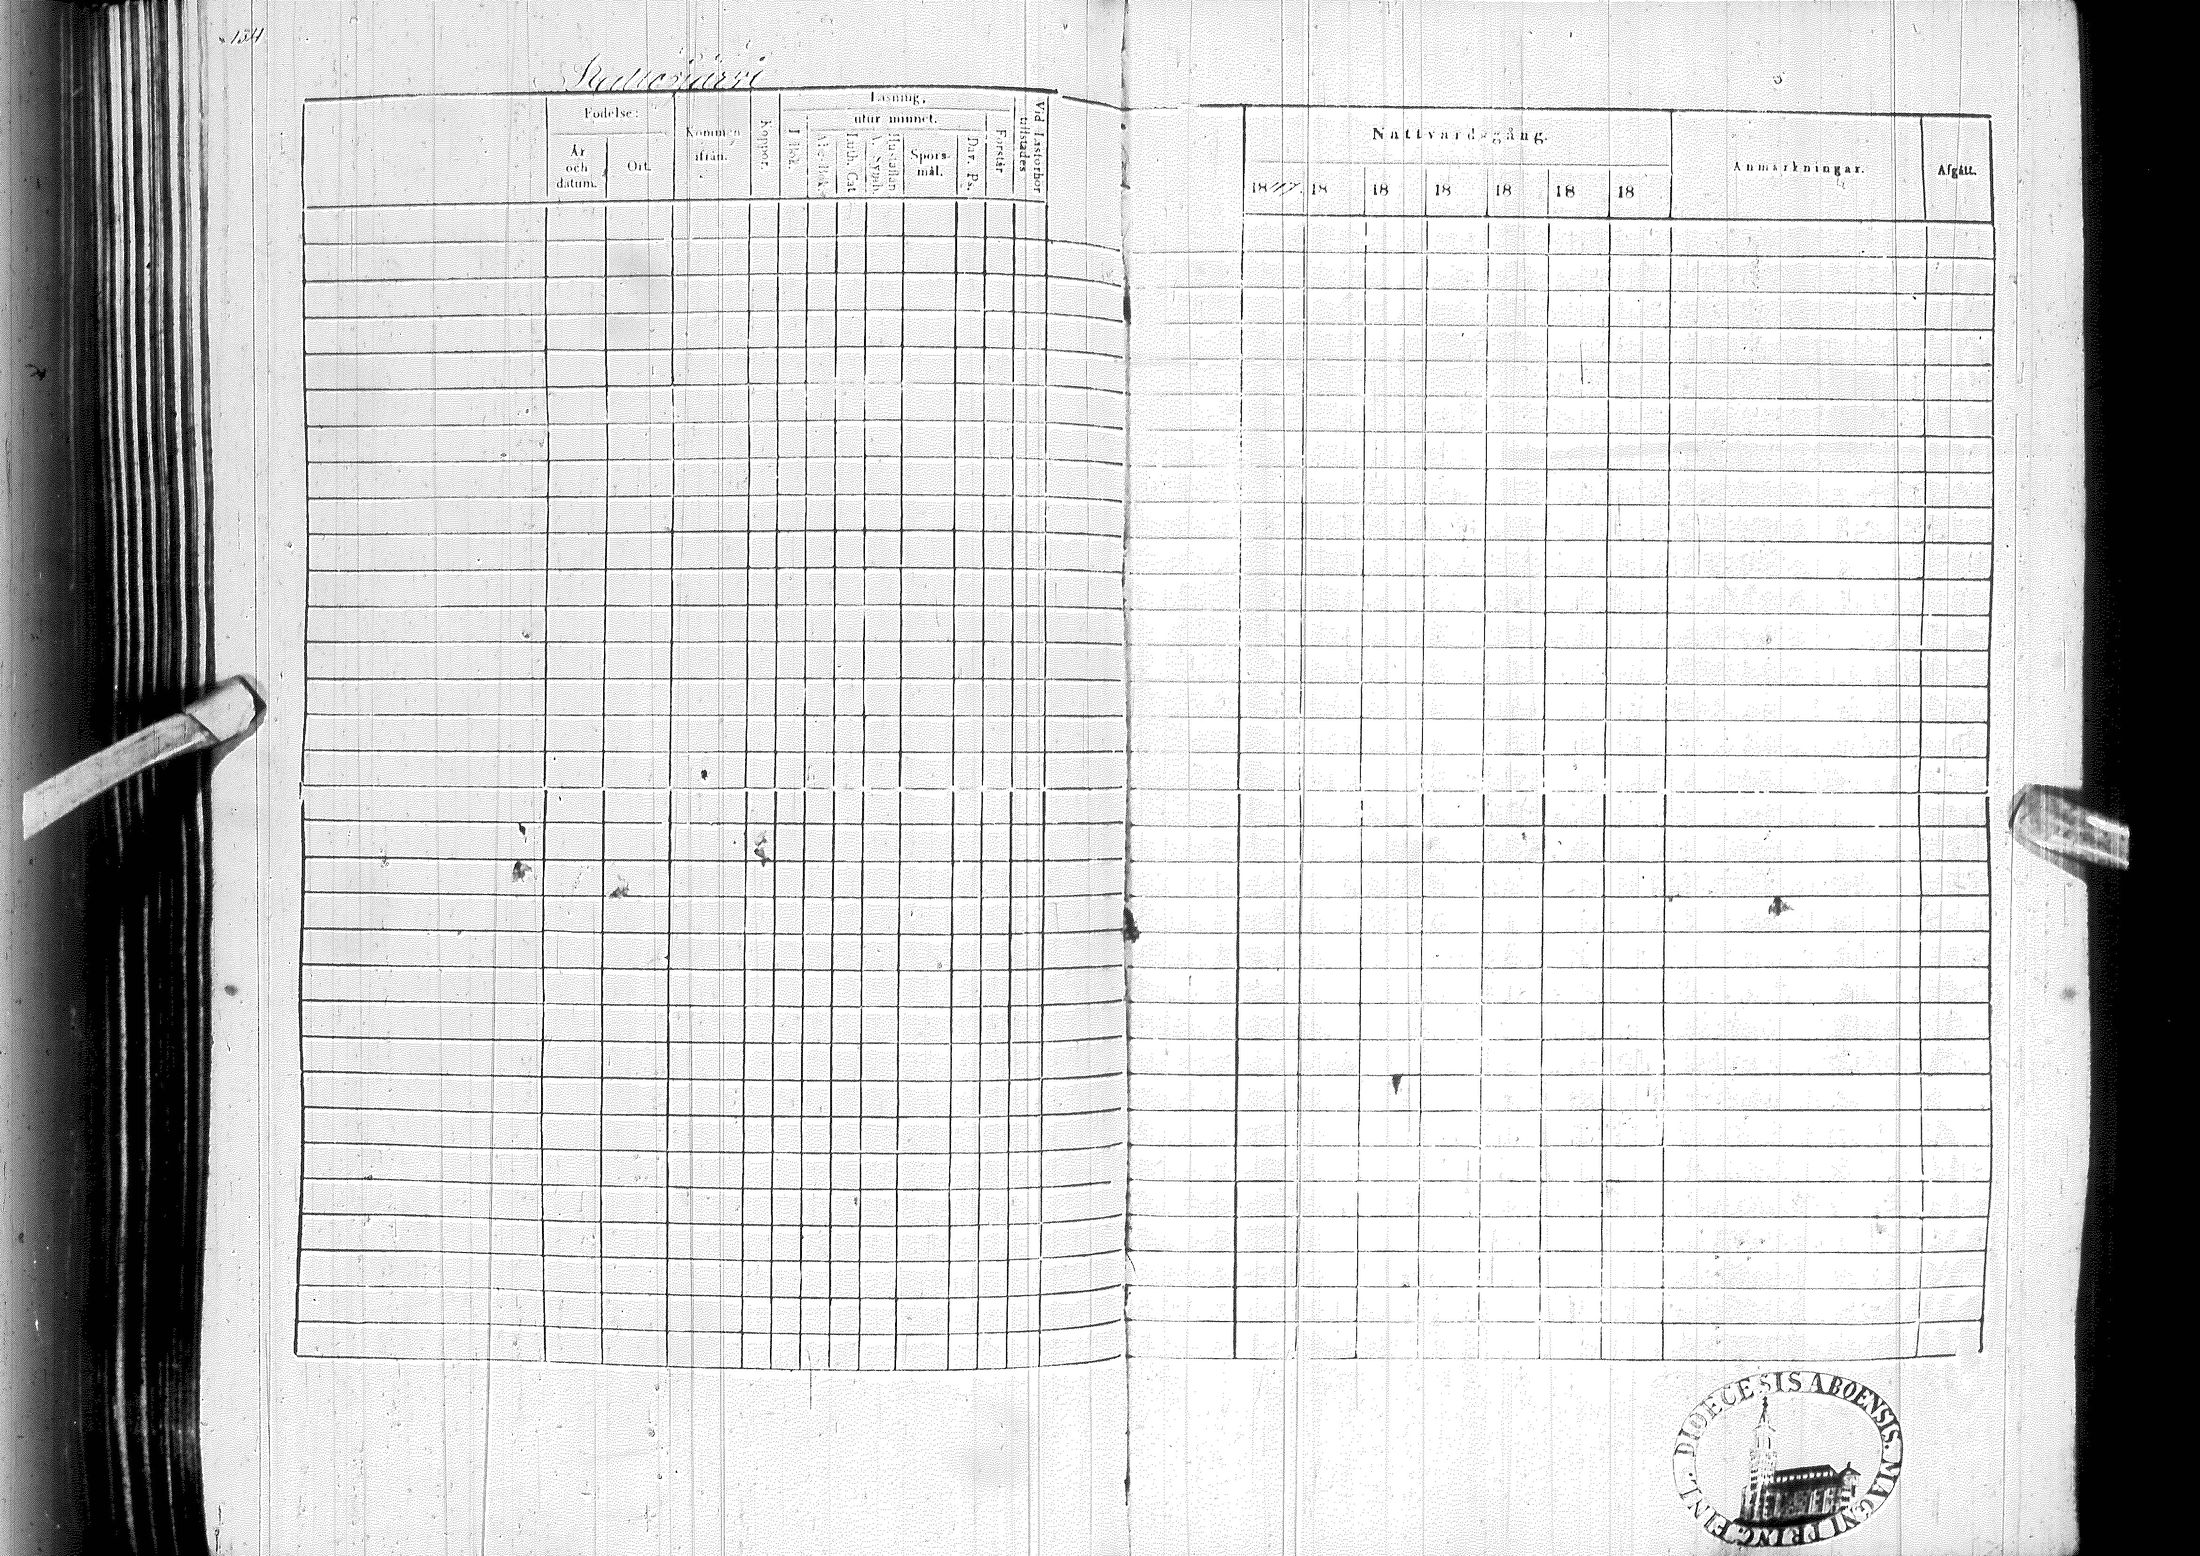 154
Födelse:
År
och
datum.
Ort.
Kommen
ifrån.
Koppor.
Läsning,
utur minnet.
I Bok.
Abc-Bok
Luth. Cat
A. Symb
Hustaflan
Spörs-
mål.
Dav. Ps.
Förstår
Vid Läsförhör
tillstädes
Nattvardsgång.
18
18
18
18
18
18
18
Anmärkningar.
Afgått.
DIOECESIS ABOENSIS. MAGNI PRINC. FINL.